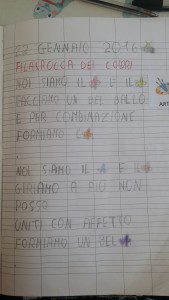 22 GENNAIO 2016
FILASTROCCA DEI COLORI
NOI SIAMO IL E IL
FACCIAMO UN BEL BALLO
E PER COMBINAZIONE
FORMIAMO L'
NOI SIAMO IL E IL
GIRIAMO A PIÙ NON
POSSO
UNITI CON AFFETTO
FORMIAMO UN BEL